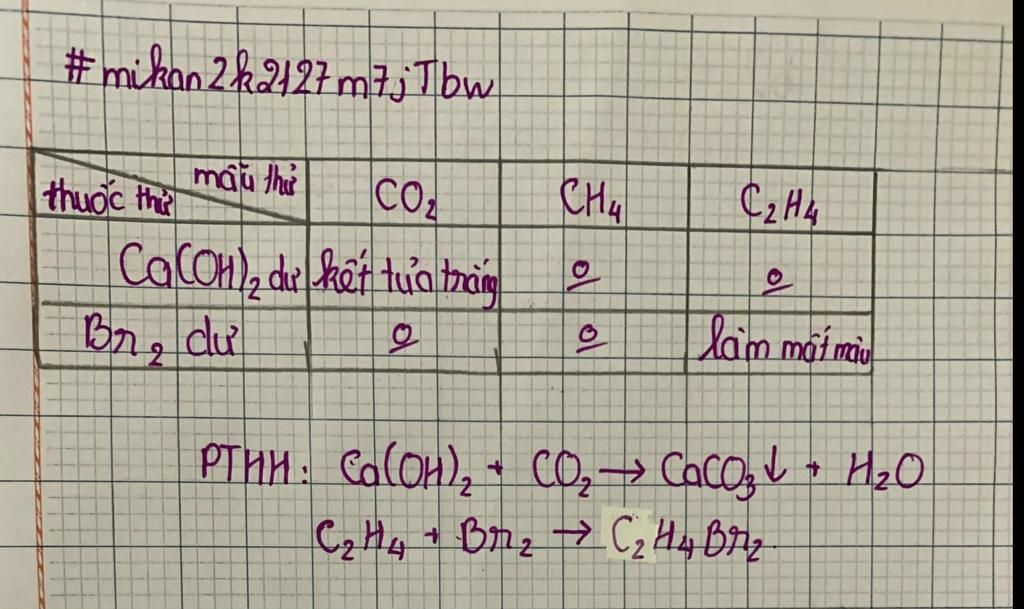 #mikan2k2127m7jTbw
mẫu thử
thuốc thử CO2 CH4 C2H4
Ca(OH)2 dư kết tủa trắng o o
Br2 dư o o làm mất màu
PTHH: Ca(OH)2 + CO2 → CaCO3↓ + H2O
C2H4 + Br2 → C2H4Br2